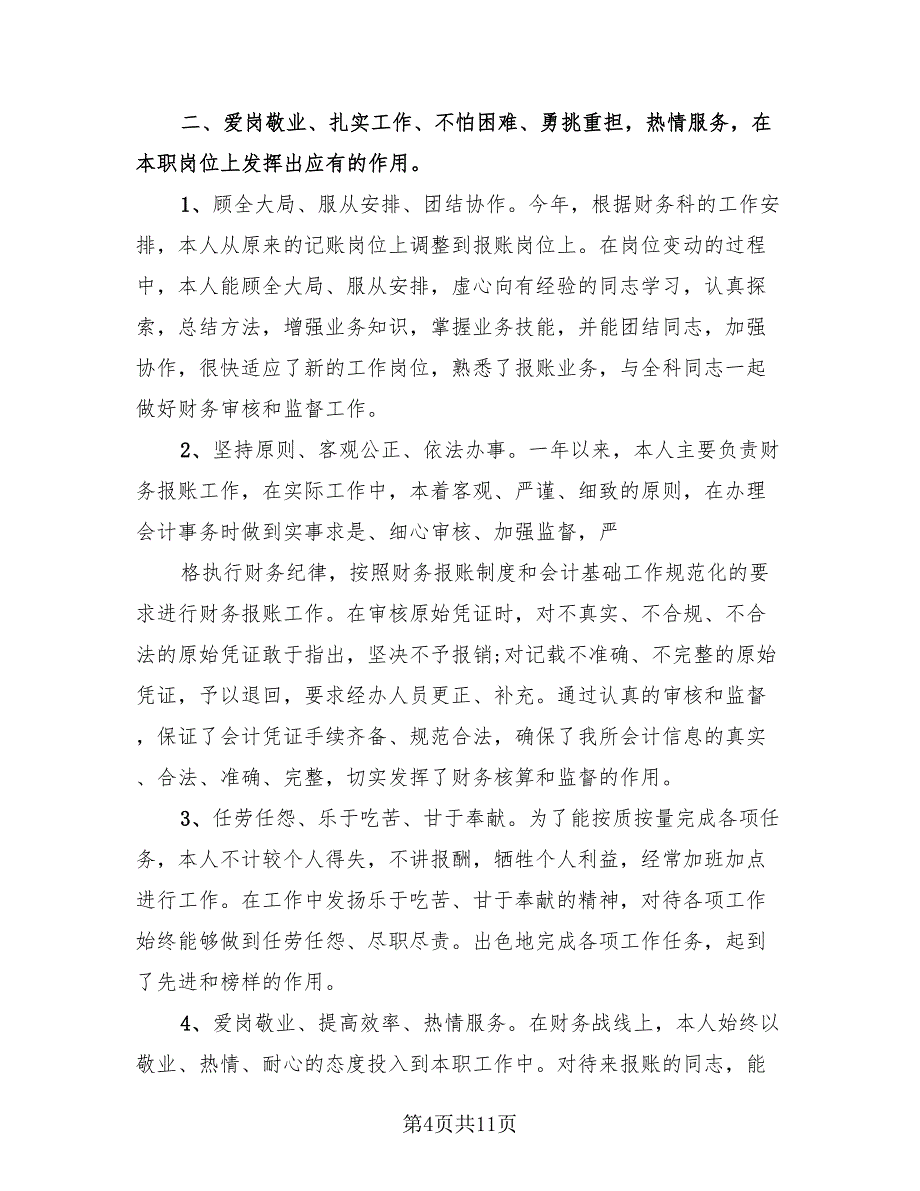 二、爱岗敬业、扎实工作、不怕困难、勇挑重担，热情服务，在
本职岗位上发挥出应有的作用。
1、顾全大局、服从安排、团结协作。今年，根据财务科的工作安
排，本人从原来的记账岗位上调整到报账岗位上。在岗位变动的过程
中，本人能顾全大局、服从安排，虚心向有经验的同志学习，认真探
索，总结方法，增强业务知识，掌握业务技能，并能团结同志，加强
协作，很快适应了新的工作岗位，熟悉了报账业务，与全科同志一起
做好财务审核和监督工作。
2、坚持原则、客观公正、依法办事。一年以来，本人主要负责财
务报账工作，在实际工作中，本着客观、严谨、细致的原则，在办理
会计事务时做到实事求是、细心审核、加强监督，严
格执行财务纪律，按照财务报账制度和会计基础工作规范化的要
求进行财务报账工作。在审核原始凭证时，对不真实、不合规、不合
法的原始凭证敢于指出，坚决不予报销;对记载不准确、不完整的原始
凭证，予以退回，要求经办人员更正、补充。通过认真的审核和监督
，保证了会计凭证手续齐备、规范合法，确保了我所会计信息的真实
、合法、准确、完整，切实发挥了财务核算和监督的作用。
3、任劳任怨、乐于吃苦、甘于奉献。为了能按质按量完成各项任
务，本人不计较个人得失，不讲报酬，牺牲个人利益，经常加班加点
进行工作。在工作中发扬乐于吃苦、甘于奉献的精神，对待各项工作
始终能够做到任劳任怨、尽职尽责。出色地完成各项工作任务，起到
了先进和榜样的作用。
4、爱岗敬业、提高效率、热情服务。在财务战线上，本人始终以
敬业、热情、耐心的态度投入到本职工作中。对待来报账的同志，能
第4页共11页